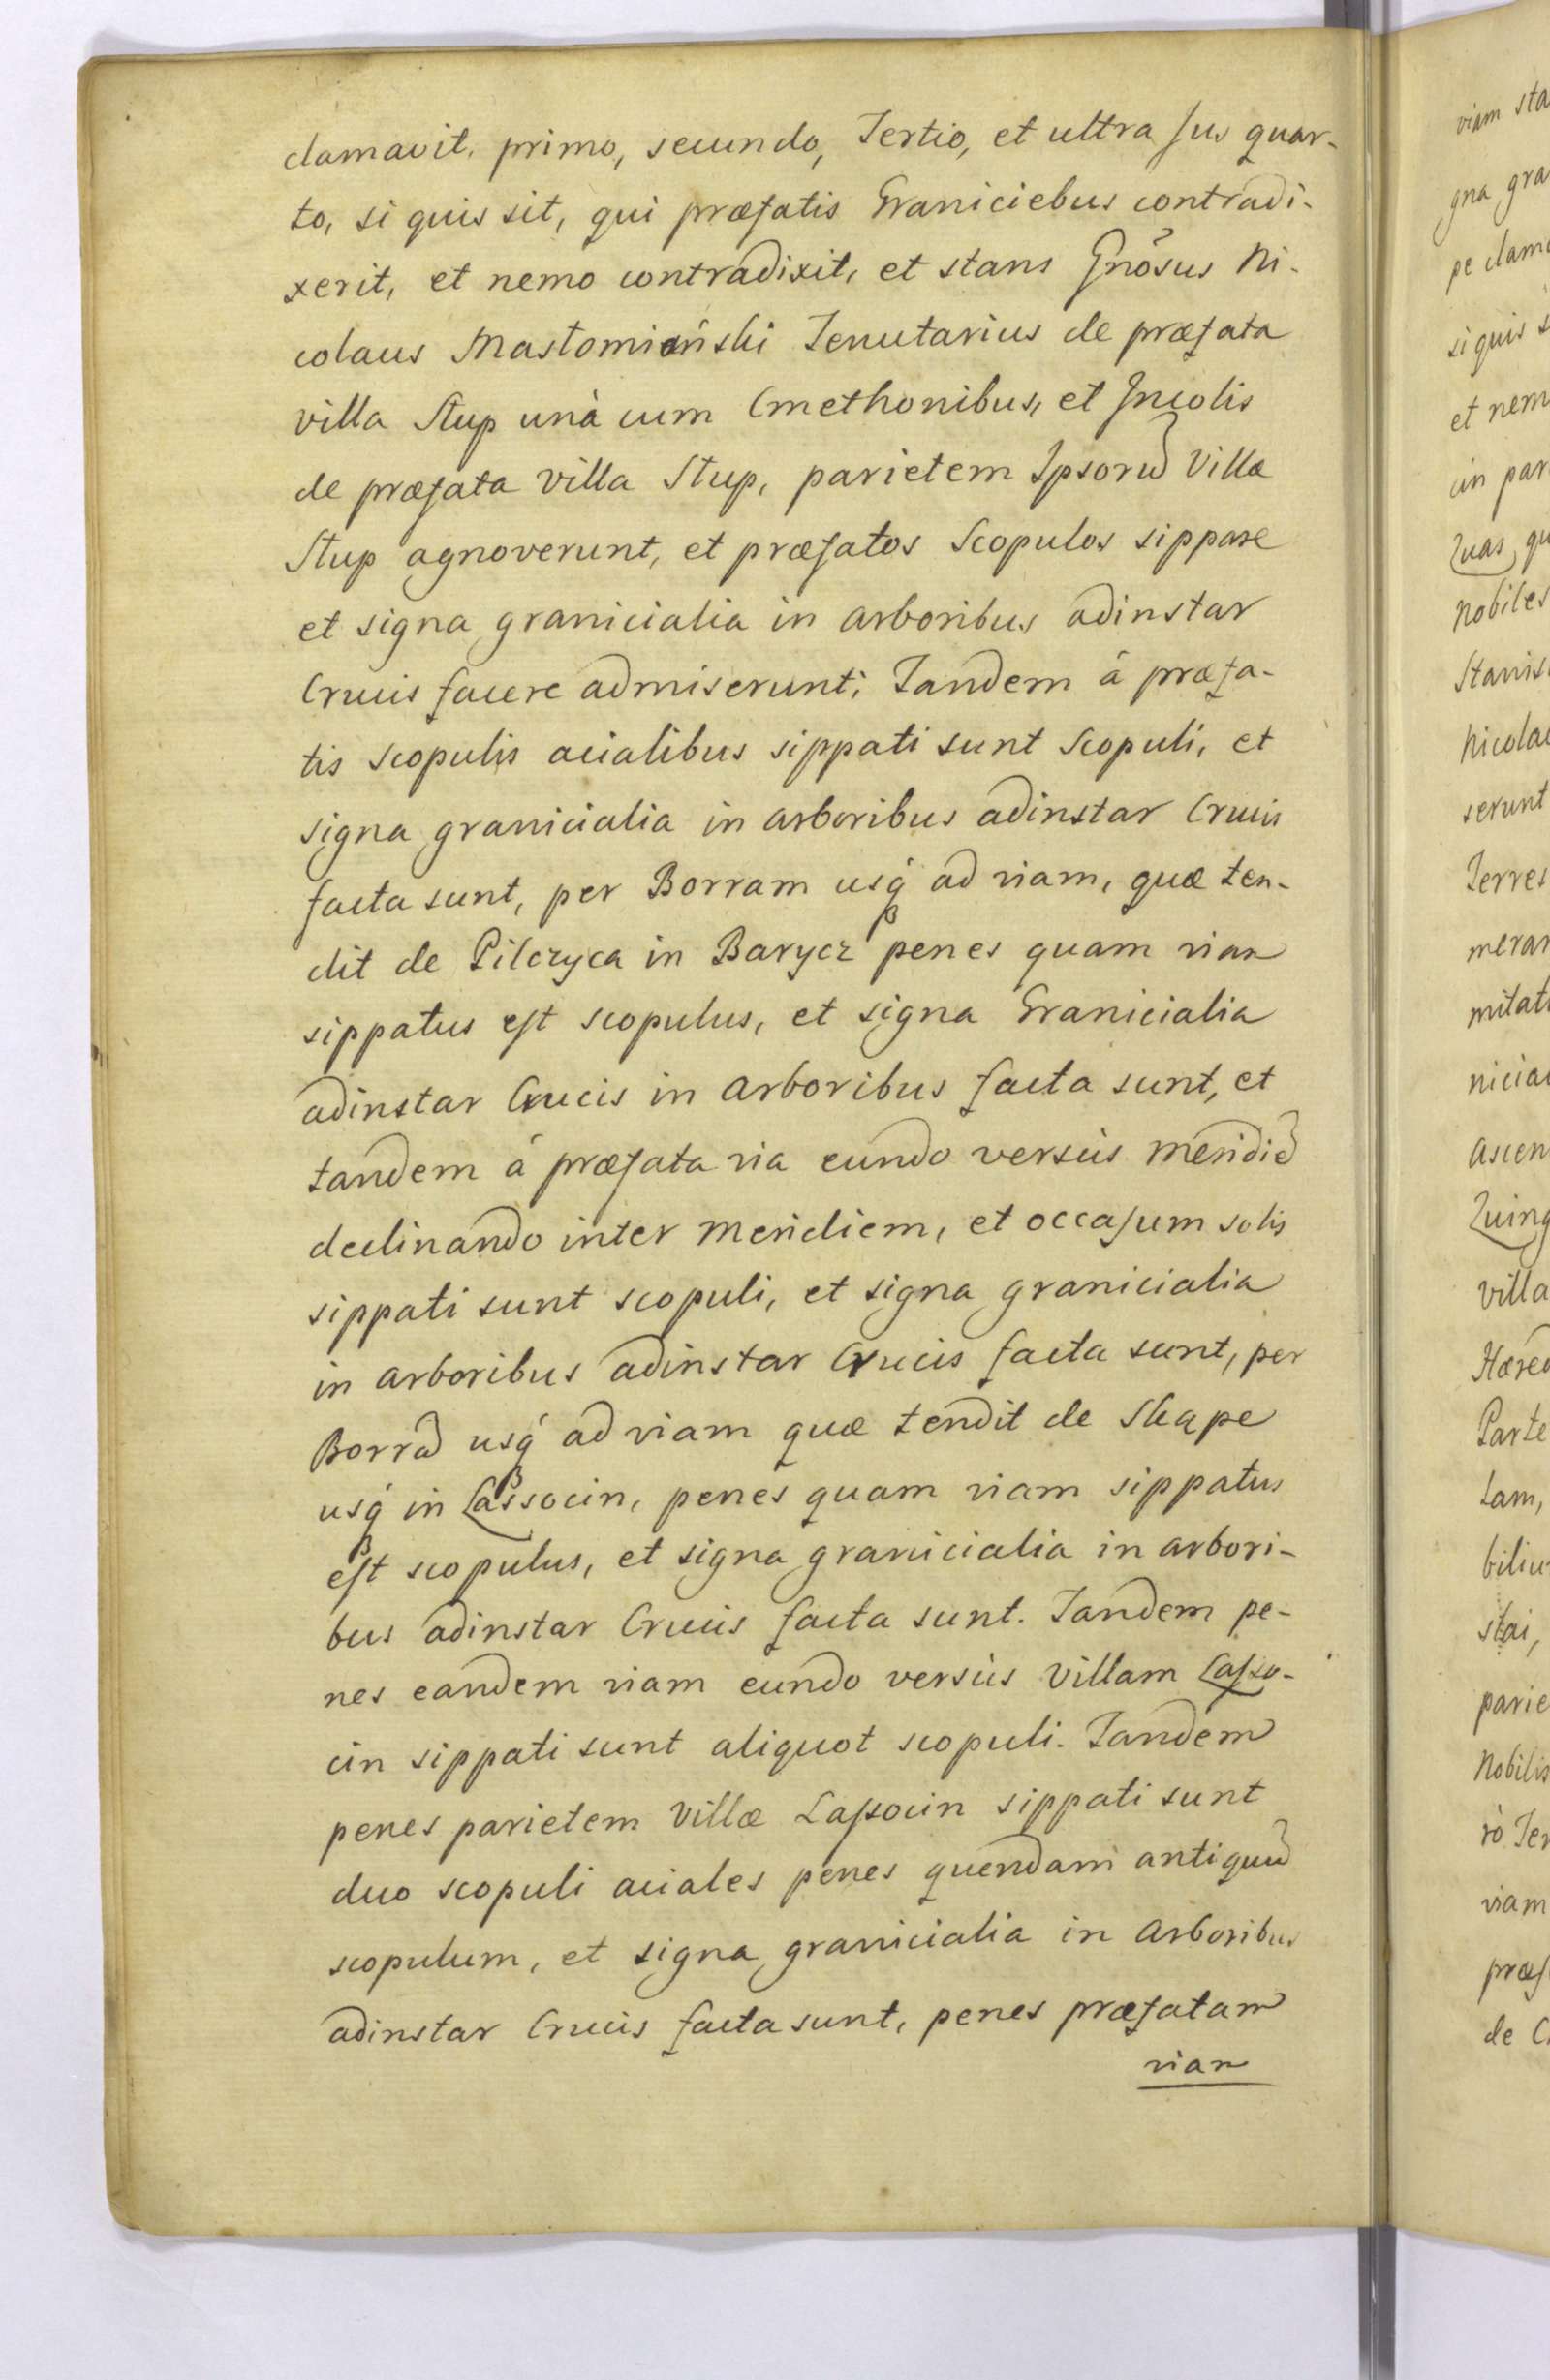 clamavit. primo, secundo, Tertio, et ultra Jus quar-
to, si quis sit, qui præfatis Graniciebus contradi-
xerit, et nemo contradixit, et stans Gnõsus Ni-
colaus Mastomieński Tenutarius de præfata
villa Stup unà cum Cmethonibus, et Jncolis
de præfata villa Stup, parietem Ipsorũ Villæ
Stup agnoverunt, et præfatos Scopulos sippare
et signa granicialia in arboribus adinstar
Crucis facere admiserunt; Tandem á præfa-
tis scopulis acialibus sippati sunt scopuli, et
signa granicialia in arboribus adinstar Crucis
facta sunt, per Borram usq́ ad viam, quæ ten-
dit de Pilczyca in Barycz penes quam viam
sippatus est scopulus, et signa Granicialia
adinstar Crucis in arboribus facta sunt, et
tandem á præfata via eundo versùs meridiẽ
declinando inter meridiem, et occasum solis
sippati sunt scopuli, et signa granicialia
in arboribus adinstar Crucis facta sunt, per
Borrã usq́ ad viam quæ tendit de Skąpe
usq́ in Lassocin, penes quam viam sippatus
est scopulus, et signa granicialia in arbori-
bus adinstar Crucis facta sunt. Tandem pe-
nes eandem viam eundo versùs villam Lasso-
cin sippati sunt aliquot scopuli. Tandem
penes parietem Villæ Lassocin sippati sunt
duo scopuli aciales penes quendam antiquũ
scopulum, et signa granicialia in arboribus
adinstar Crucis facta sunt, penes præfatam
viam
viam sta
gna gra
pe clama
si quis s
et nem
cin par
Quas, qu
Nobiles
Stanis
Nicolau
serunt
Terres
meran
mitat
niciae
ascen
Quinq
villa
Hæred
Parte
tam,
biliu
stai,
parie
Nobilis
rò Ter
viam
præf
de C